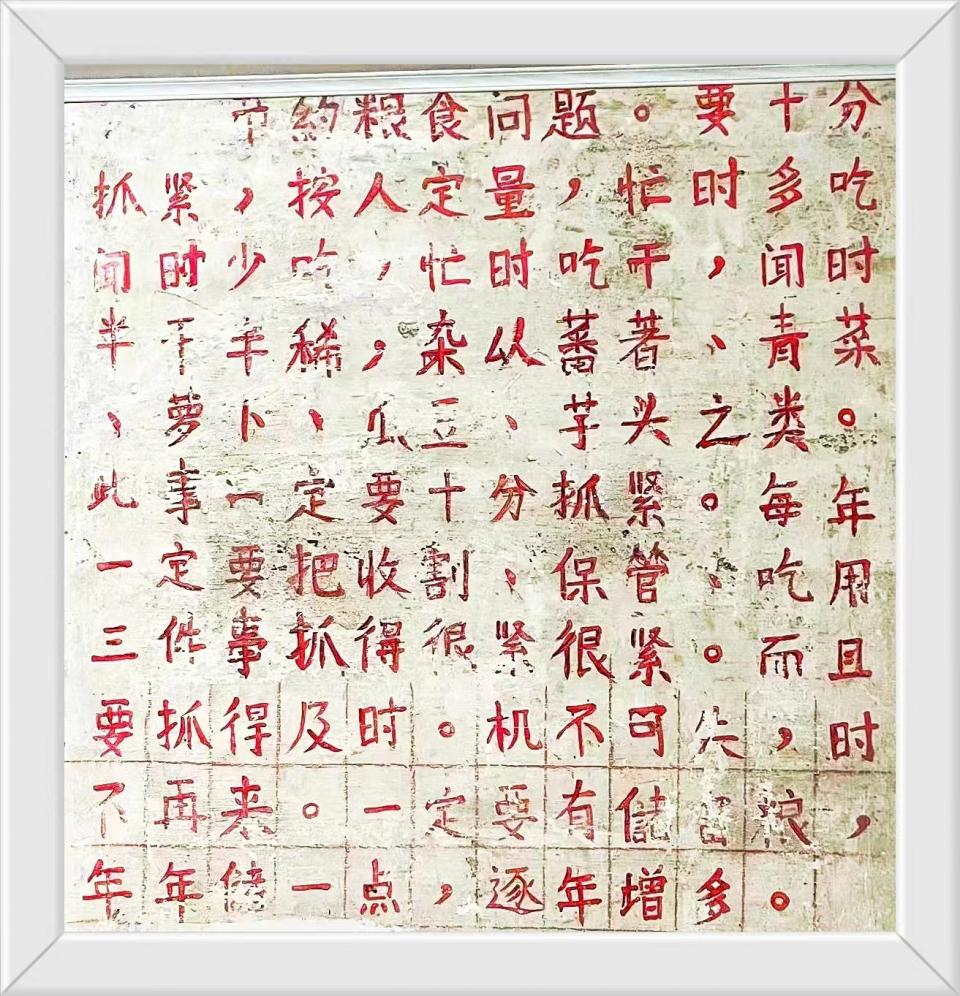 节約粮食问题。要十分
抓紧，按人定量，忙时多吃
闻时少吃，忙时吃干，闻时
半干半稀，杂以蕃著、青菜
、萝卜、瓜豆、芋头之类。
此事一定要十分抓紧。每年
一定要把收割、保管、吃用
三件事抓得很紧很紧。而且
要抓得及时。机不可失，时
不再来。一定要有储备粮，
年年储一点，逐年增多。